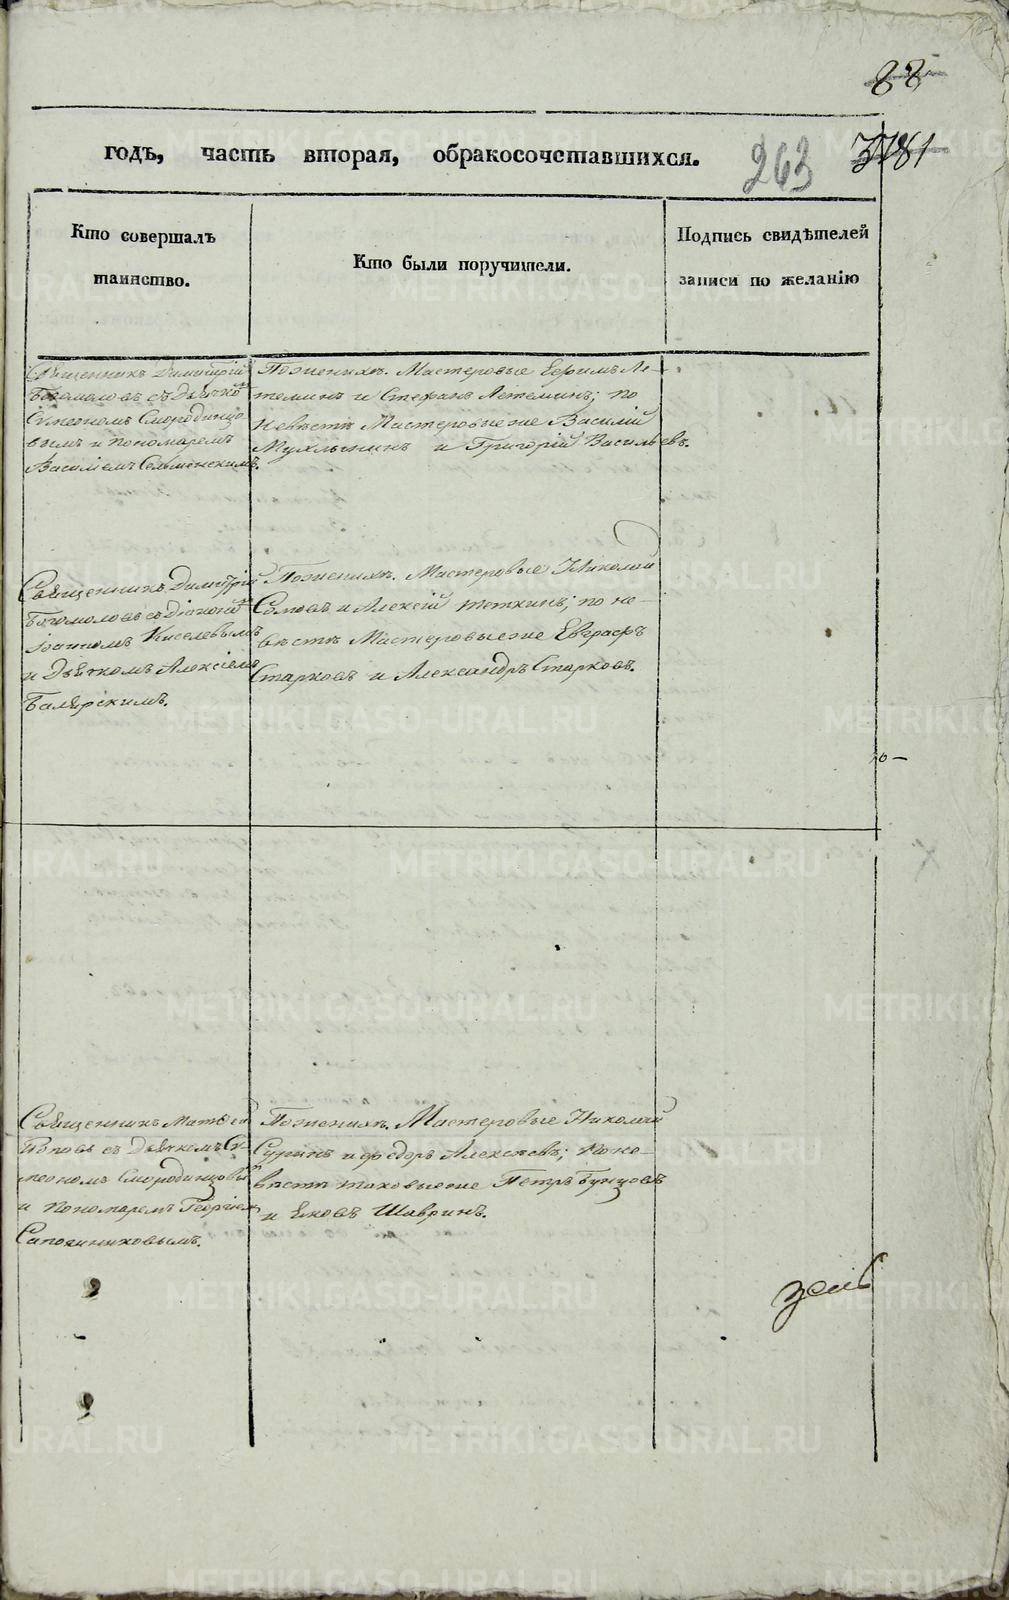 88
годъ, часть вторая, обракосочетавшихся.
263
Кто совершалъ
таинство.
Кто были поручители.
Подпись свидѣтелей
записи по желанію
Священникъ Димитрій
Богомоловъ съ Дьячко
Симеономъ Смородинцо
вымъ и пономаремъ
Василіемъ Сельменскимъ.
По женихѣ. Мастеровые Ефимъ Ле-
темин и Стефанъ Летеминъ; по
невѣстѣ Мастеровые же Василій
и Григорій Васильевъ.
Священникъ Димитрій
Богомоловъ съ Діакономъ
Іоанномъ Киселевымъ
и Дьячкомъ Алексіемъ
По женихѣ. Мастеровые Николай
Сомовъ и Алексій Теткинъ; по не-
вѣстѣ Мастеровые же Евграфъ
Старковъ и Александръ Старковъ.
Священникъ Матѳей
Поповъ съ Дьячкомъ Си-
меономъ Смородинцовы
и пономаремъ Георгіемъ
Сапожниковымъ.
По женихѣ. Мастеровые Николай
Суринъ и Федоръ Алексѣевъ; по не-
вѣстѣ таковые же Петръ Бунцовъ
и Яковъ Шавринъ.
METRIKI.GASO-URAL.RU